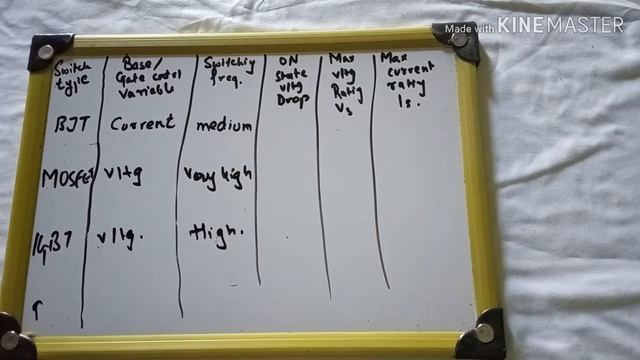 Made with KINEMASTER
Switch type
Base/ Gate control variable
Switching freq.
ON state vltg Drop
Max vltg Rating Vs
Max current rating Is.
BJT Current medium
MOSFET vltg Very high
IGBT vltg. High.